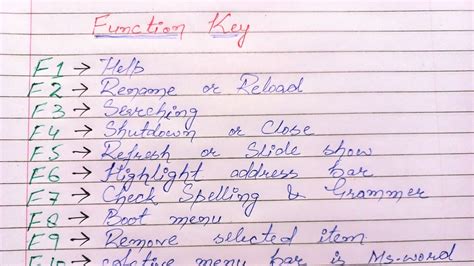 Function Key
F1 → Help
F2 → Rename or Reload
F3 → Searching
F4 → Shutdown or Close
F5 → Refresh or Slide show
F6 → Highlight address bar
F7 → Check Spelling & Grammer
F8 → Boot menu
F9 → Remove selected item
F10 → Active menu bar is Ms-word